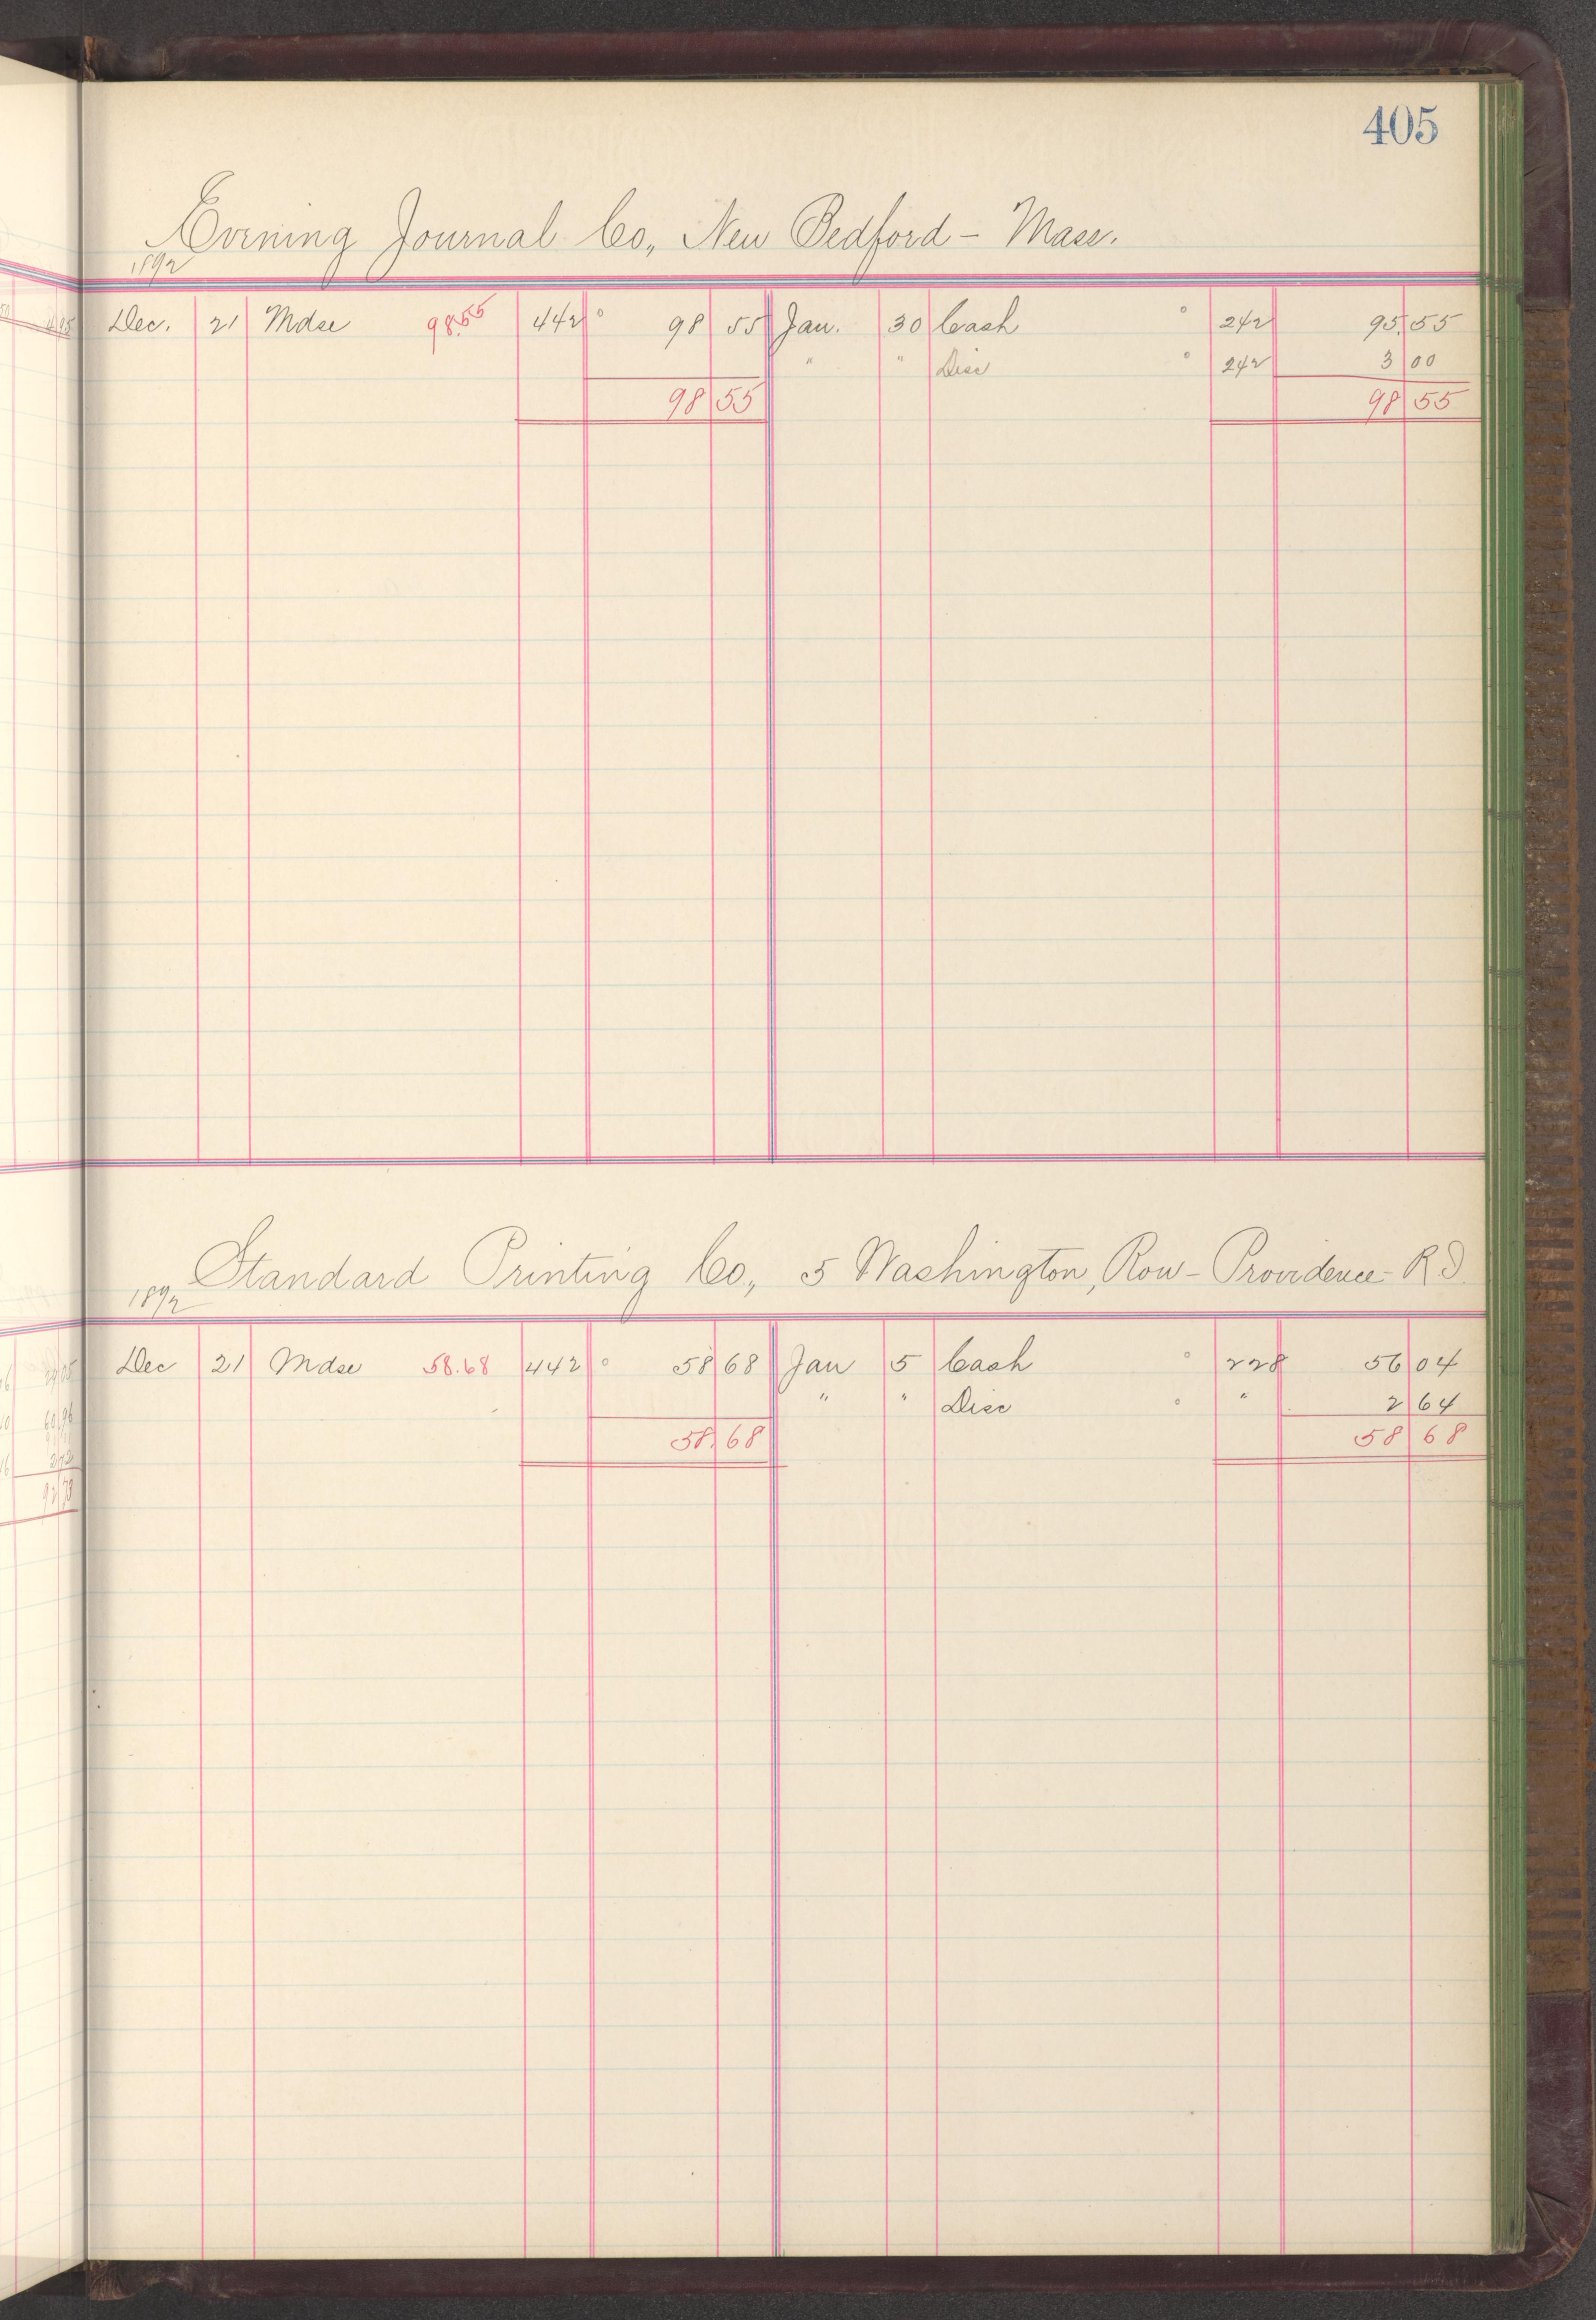 405
Evening Journal Co., New Bedford - Mass.
1892
Dec. 21 Mdse 98.55 442 98 55 Jan. 30 Cash 242 95.55
" " Disc 242 3 00
98 55 98 55
Standard Printing Co., 5 Washington, Row - Providence - R I
1892
Dec 21 Mdse 58.68 442 58 68 Jan 5 Cash 228 56 04
" " Disc " 2 64
58.68 58 68